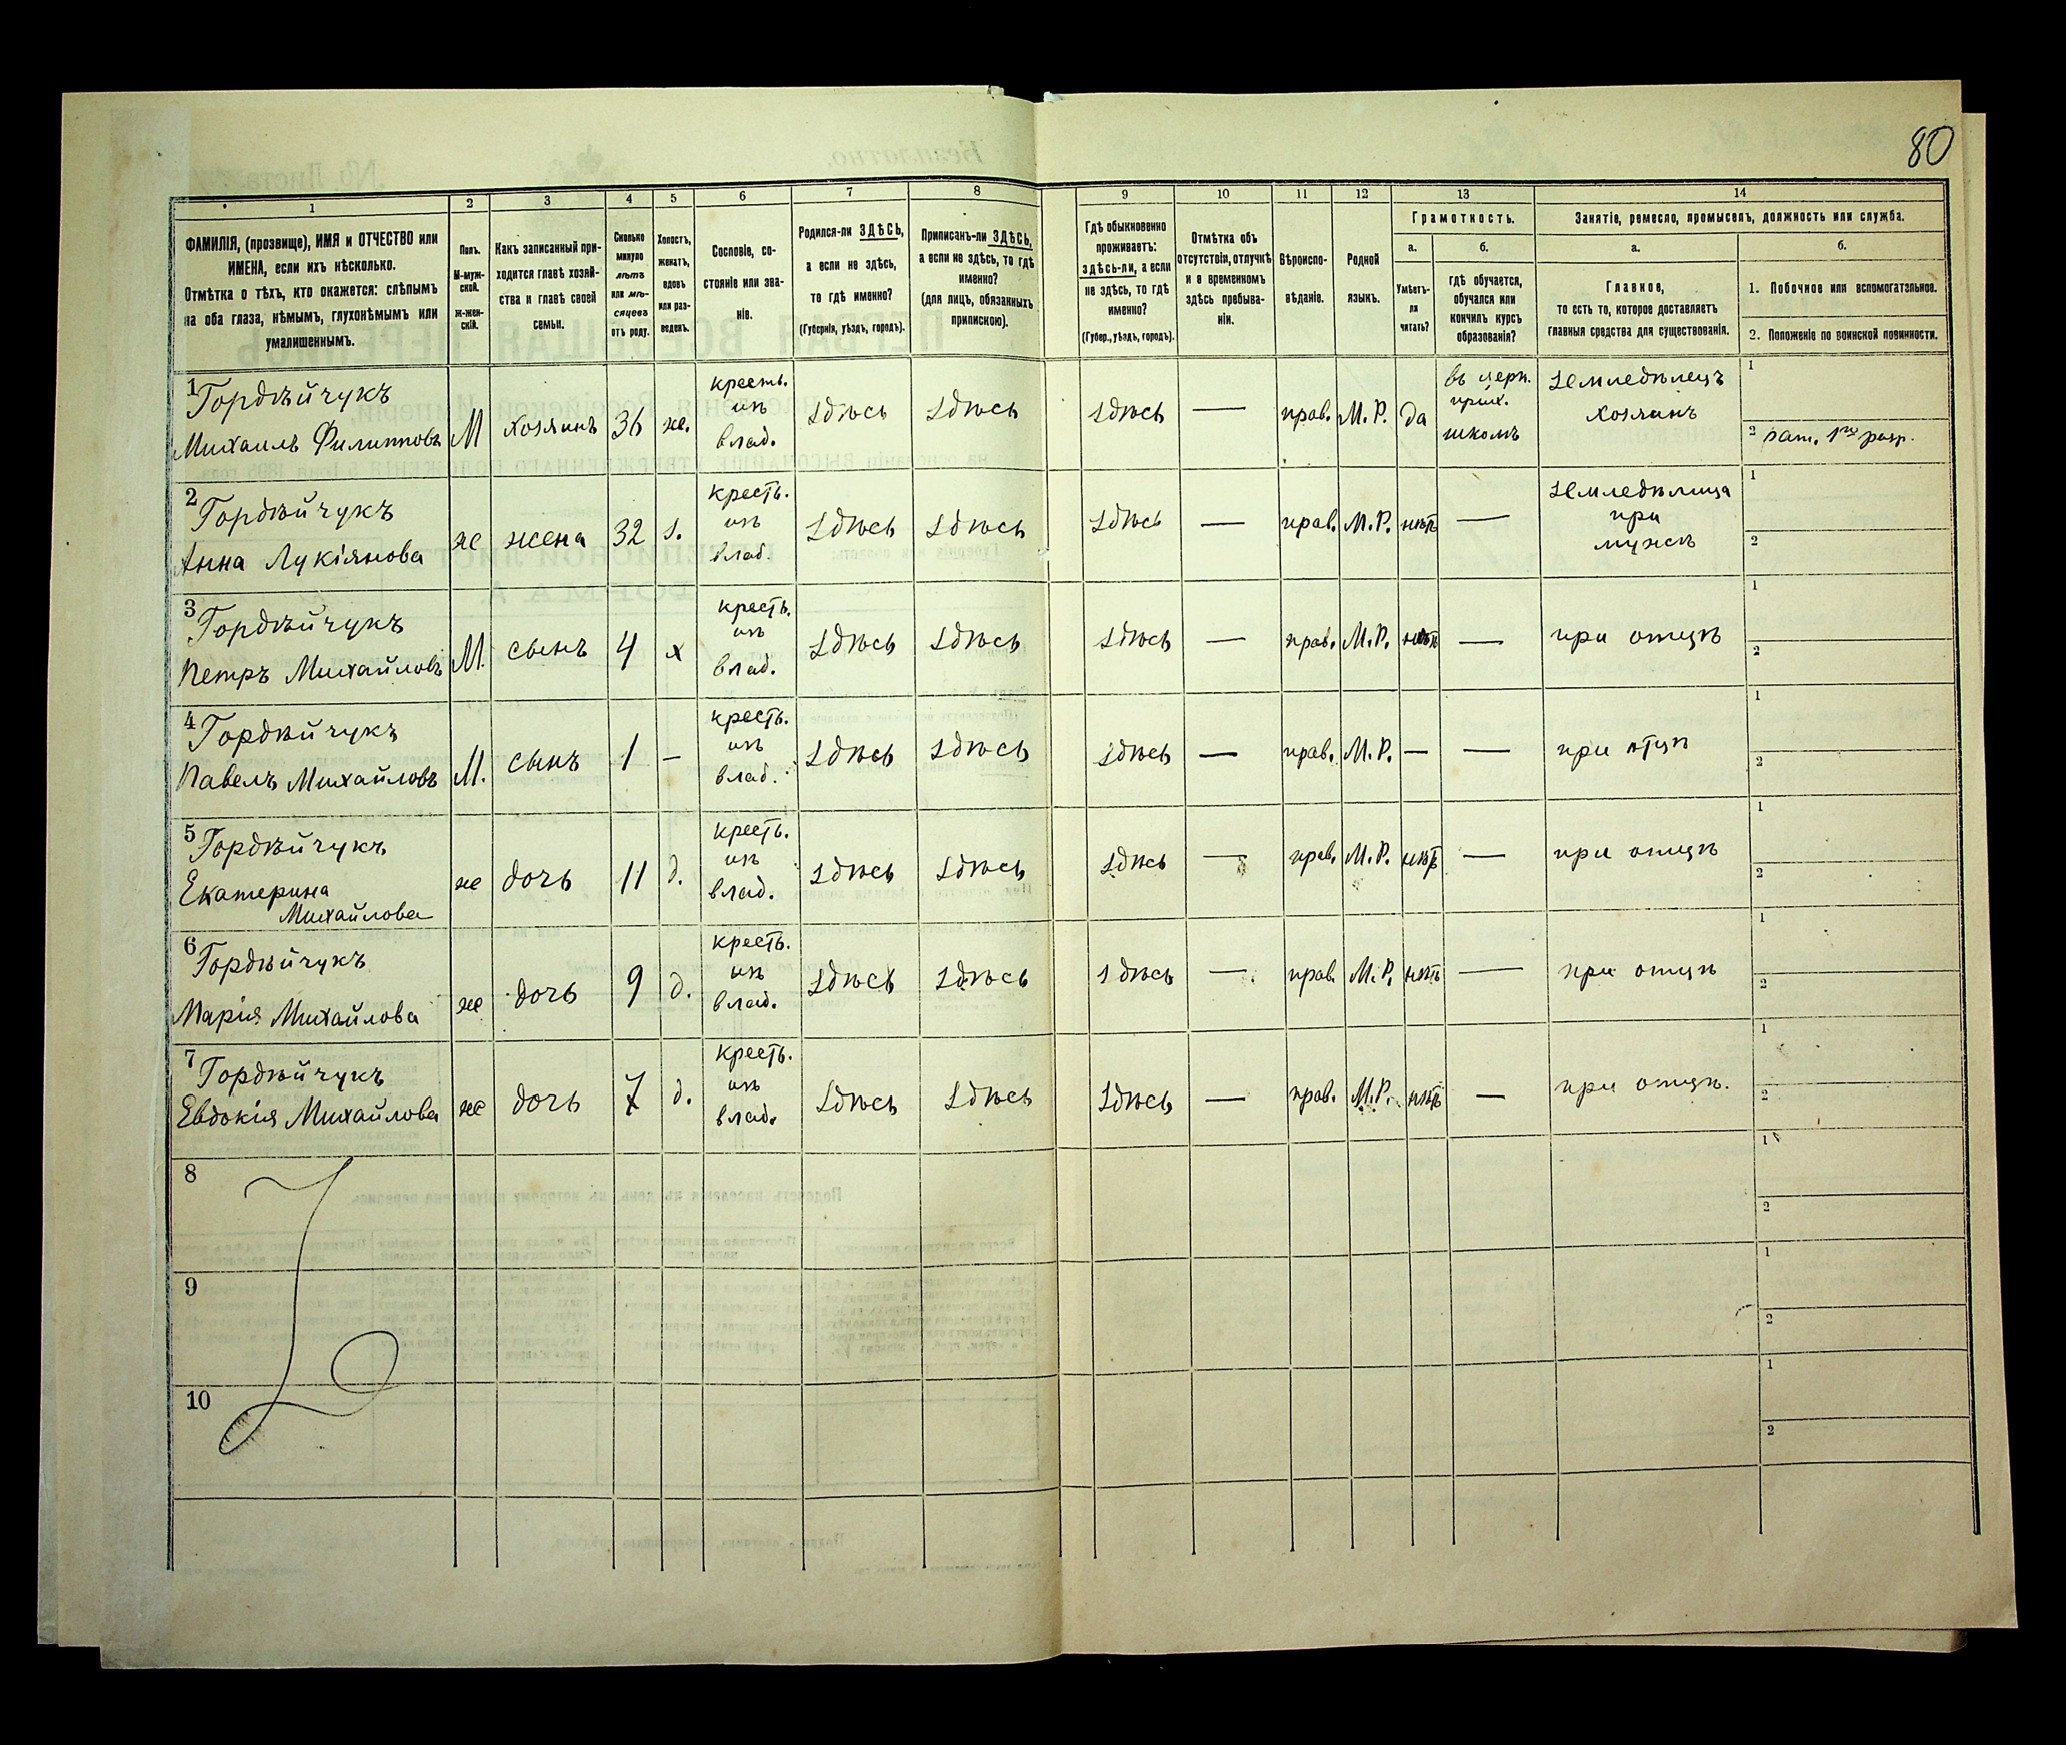 80
1 2 3 4 5 6 7 8 9 10 11 12 13 14
ФАМИЛІЯ, (прозвище), ИМЯ и ОТЧЕСТВО или
ИМЕНА, если ихъ нѣсколько.
Отмѣтка о тѣхъ, кто окажется: слѣпымъ
на оба глаза, нѣмымъ, глухонѣмымъ или
умалишеннымъ.
Полъ.
М-муж-
ской.
ж-жен-
скій.
Какъ записанный при-
ходится главѣ хозяй-
ства и главѣ своей
семьи.
Сколько
минуло
лѣтъ
или мѣ-
сяцевъ
отъ роду.
Холостъ,
женатъ,
вдовъ
или раз-
веденъ.
Сословіе, со-
стояніе или зва-
ніе.
Родился-ли ЗДѢСЬ,
а если не здѣсь,
то гдѣ именно?
(Губернія, уѣздъ, городъ).
Приписанъ-ли ЗДѢСЬ,
а если не здѣсь, то гдѣ
именно?
(для лицъ, обязанныхъ
припискою).
Гдѣ обыкновенно
проживаетъ:
здѣсь-ли, а если
не здѣсь, то гдѣ
именно?
(Губер., уѣздъ, городъ).
Отмѣтка объ
отсутствіи, отлучкѣ
и о временномъ
здѣсь пребыва-
ніи.
Вѣроиспо-
вѣданіе.
Родной
языкъ.
Грамотность.
а.
Умѣетъ-
ли
читать?
б.
гдѣ обучается,
обучался или
кончилъ курсъ
образованія?
Занятіе, ремесло, промыселъ, должность или служба.
а.
Главное,
то есть то, которое доставляетъ
главныя средства для существованія.
б.
1. Побочное или вспомогательное.
2. Положеніе по воинской повинности.
1 Гордѣйчукъ
Михаилъ Филипповъ М хозяинъ 36 же.
кресть.
изъ
влад.
здѣсь здѣсь здѣсь — прав. М.Р. да
въ церк.
прих.
школѣ
земледѣлецъ
хозяинъ
1
2 рат. 1го разр.
2 Гордѣйчукъ
Анна Лукіянова же жена 32 з.
кресть.
изъ
влад.
здѣсь здѣсь здѣсь — прав. М.Р. нѣтъ —
земледѣлица
при
мужѣ
1
2
3 Гордѣйчукъ
Петръ Михайловъ М. сынъ 4 х
кресть.
изъ
влад.
здѣсь здѣсь здѣсь — прав. М.Р. нѣтъ — при отцѣ
1
2
4 Гордѣйчукъ
Павелъ Михайловъ М. сынъ 1 —
кресть.
изъ
влад.
здѣсь здѣсь здѣсь — прав. М.Р. — — при отцѣ
1
2
5 Гордѣйчукъ
Екатерина
Михайлова же дочь 11 д.
кресть.
изъ
влад.
здѣсь здѣсь здѣсь — прав. М.Р. нѣтъ — при отцѣ
1
2
6 Гордѣйчукъ
Марія Михайлова же дочь 9 д.
кресть.
изъ
влад.
здѣсь здѣсь здѣсь — прав. М.Р. нѣтъ — при отцѣ
1
2
7 Гордѣйчукъ
Евдокія Михайлова же дочь 7 д.
кресть.
изъ
влад.
здѣсь здѣсь здѣсь — прав. М.Р. нѣтъ — при отцѣ.
1
2
8
1
2
9
1
2
10
1
2